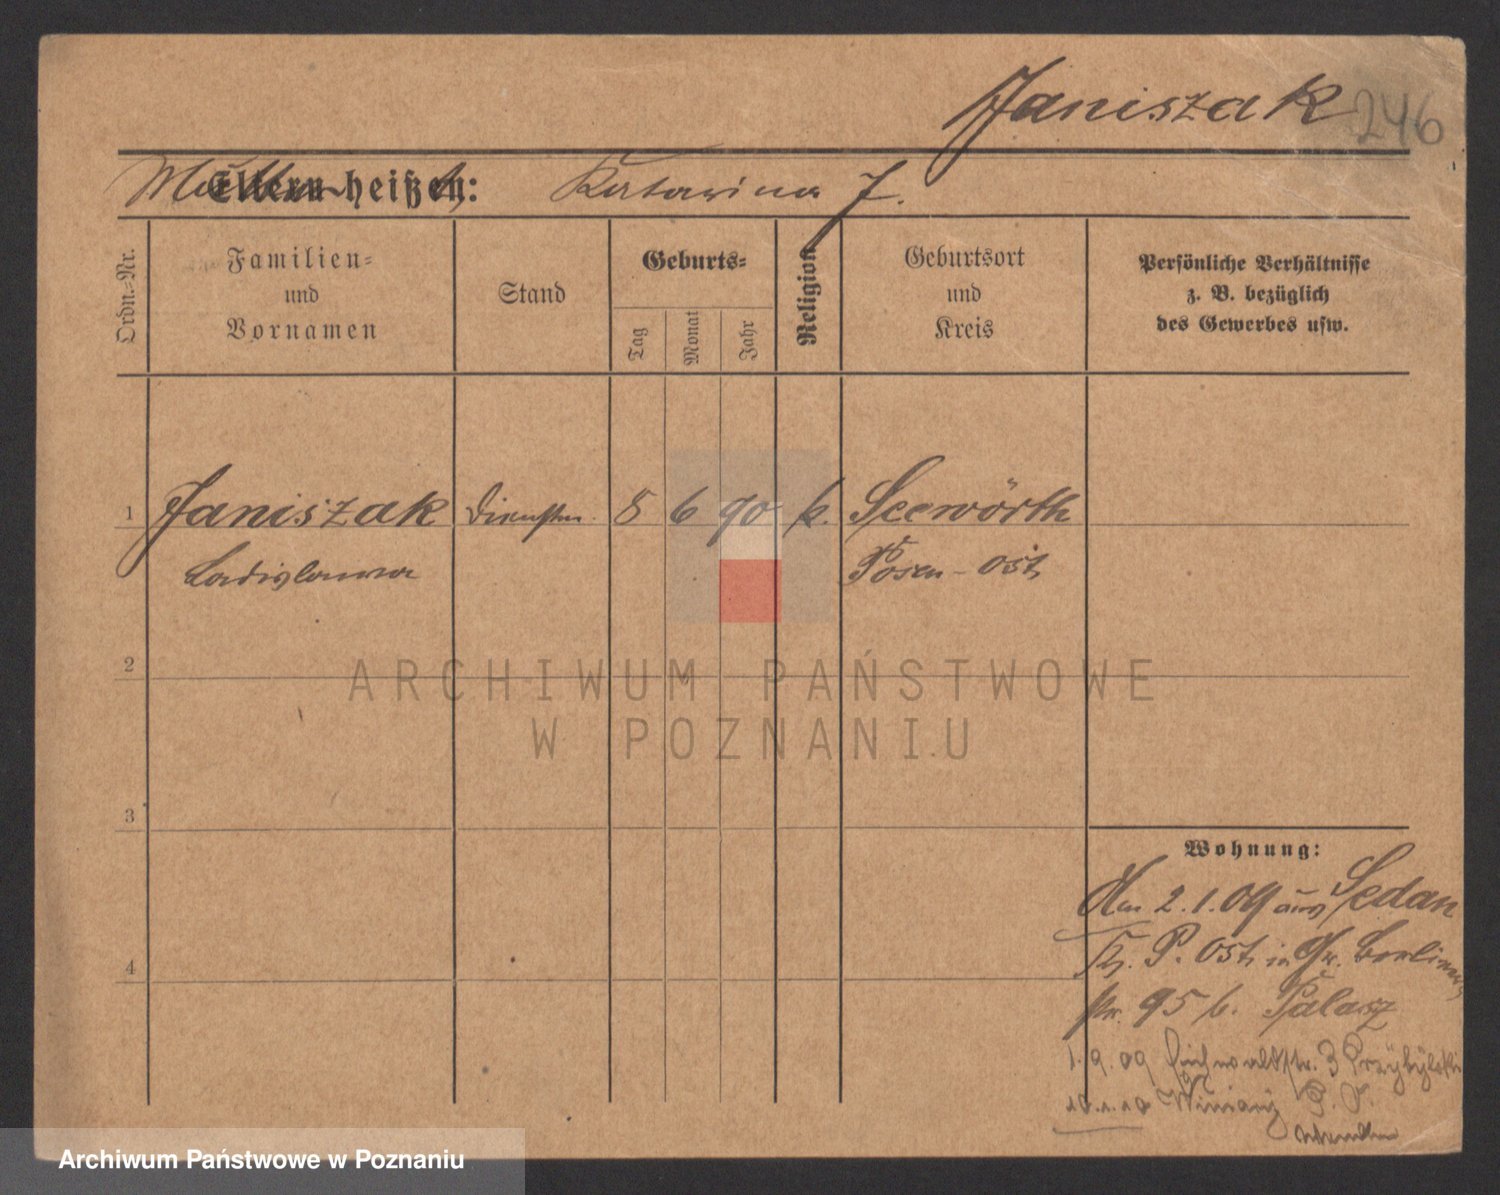 Janiszak 246
Eltern heißen: Katarina J.
Ordn.-Nr.
Familien-
und
Vornamen
Stand
Geburts-
Tag
Monat
Jahr
Religion
Geburtsort
und
Kreis
Persönliche Verhältnisse
z. B. bezüglich
des Gewerbes usw.
1 Janiszak 8 6 90 k. Seewörth
Ladislawa Posen-Ost
ARCHIWUM PAŃSTWOWE
W POZNANIU
2
3
4
Wohnung:
2.1.09 aus Sedan
P. Ost in Gr. Berliner
str. 95 b. Palasz
1.9.09 Eichwaldstr. 3 Przybylski
10.1.10 Winiary P. O.
Archiwum Państwowe w Poznaniu